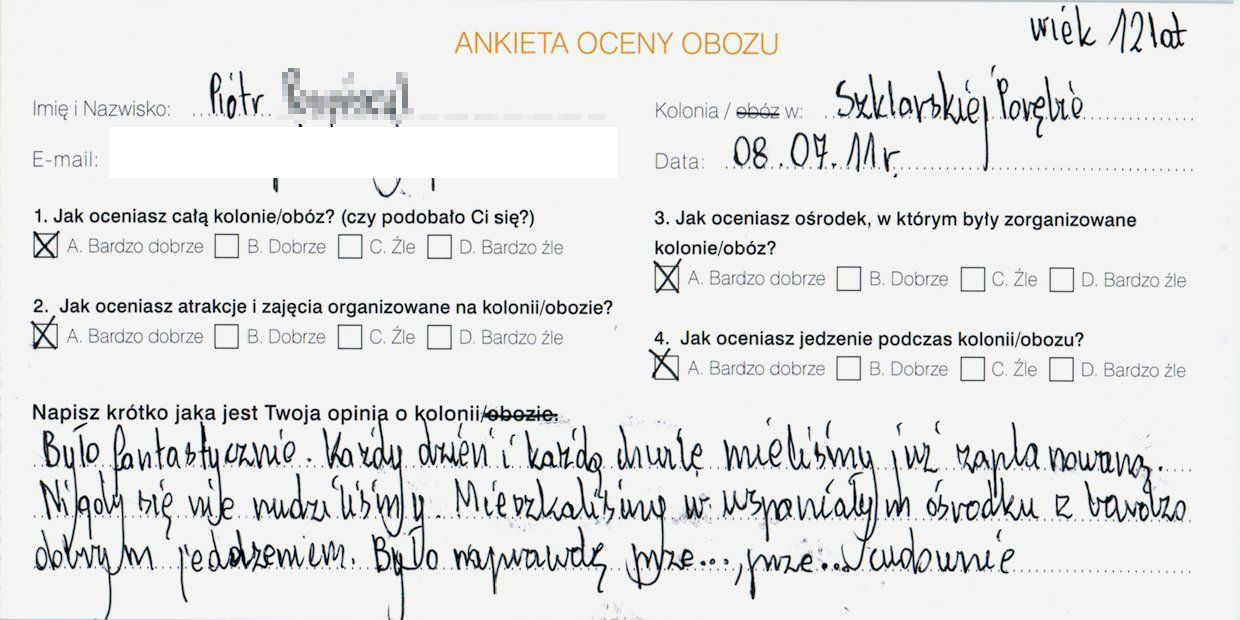 wiek 12 lat
ANKIETA OCENY OBOZU
Imię i Nazwisko: Piotr
Kolonia / obóz w: Szklarskiej Porębie
E-mail:
Data: 08.07.11r.
1. Jak oceniasz całą kolonie/obóz? (czy podobało Ci się?)
A. Bardzo dobrze B. Dobrze C. Źle D. Bardzo źle
2. Jak oceniasz atrakcje i zajęcia organizowane na kolonii/obozie?
A. Bardzo dobrze B. Dobrze C. Źle D. Bardzo źle
3. Jak oceniasz ośrodek, w którym były zorganizowane
kolonie/obóz?
A. Bardzo dobrze B. Dobrze C. Źle D. Bardzo źle
4. Jak oceniasz jedzenie podczas kolonii/obozu?
A. Bardzo dobrze B. Dobrze C. Źle D. Bardzo źle
Napisz krótko jaka jest Twoja opinia o kolonii/obozie.
Było fantastycznie. Każdy dzień i każdą chwilę mieliśmy już zaplanowaną.
Nigdy się nie nudziliśmy. Mieszkaliśmy w wspaniałym ośrodku z bardzo
dobrym jedzeniem. Było naprawdę prze..., prze... cudownie